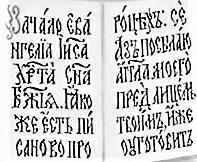 Зачало є҆ѵа
нгелїа І҆и҃са
Хр҃та Сн҃а
Бж҃їѧ. Ꙗ҆ко
же є҆сть пи
сано во про
ро́цѣхъ: Сѐ
а҆зъ посылаю
а҆́гг҃ла моегѡ̀
пред лицемъ
твоимъ, и҆́же
оу҆готовитъ